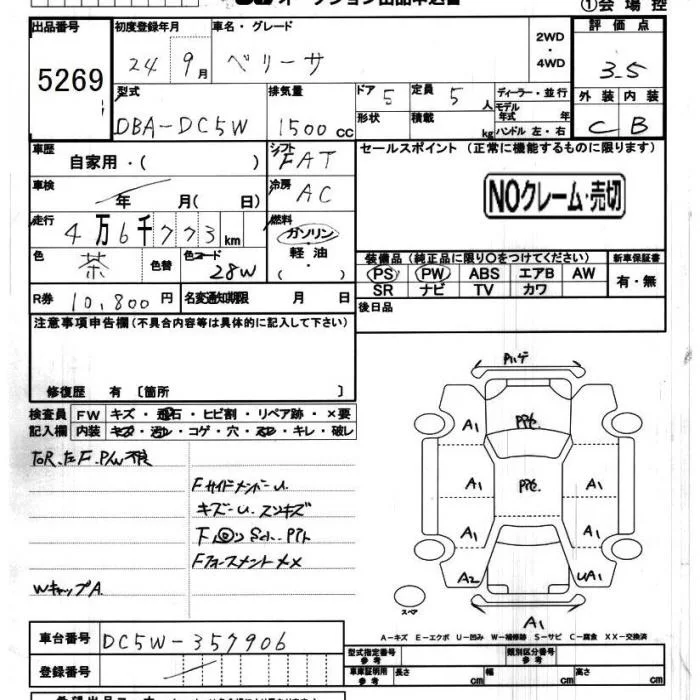 ①会場控
出品番号
5269
初度登録年月
24年 9月
車名・グレード
ベリーサ
2WD
・
4WD
評価点
3.5
型式
DBA-DC5W
排気量
1500 CC
ドア 5
定員 5 人
形状
積載 kg
ディーラー・並行
モデル年式 年
ハンドル 左・右
外装 内装
C B
車歴
自家用・( )
シフト
FAT
セールスポイント(正常に機能するものに限ります)
NOクレーム・売切
車検
年 月( 日)
冷房
AC
走行
4万6千773km
燃料
ガソリン
軽油
・
( )
色
茶
色替
色コード
28W
装備品(純正品に限り○をつけてください)
新車保証書
PS PW ABS エアB AW
SR ナビ TV カワ
有・無
R券
10,800円
名変通知期限 月 日
後日品
注意事項申告欄(不具合内容等は具体的に記入して下さい)
修復歴 有 〔箇所 〕
検査員記入欄
FW キズ・飛石・ヒビ割・リペア跡・×要
内装 キズ・汚レ・コゲ・穴・スレ・キレ・破レ
Fサイドメンバーu.
キズ-u.
Wキャップ A.
A1
A1 A1
A1 A1
A2 uA1
A1
スペア
A-キズ E-エクボ U-凹み W-補修跡 S-サビ C-腐食 XX-交換済
車台番号
DC5W-357906
登録番号
型式指定番号
参考
類別区分番号
参考
車庫証明用
参考
長さ cm
幅 cm
高さ cm